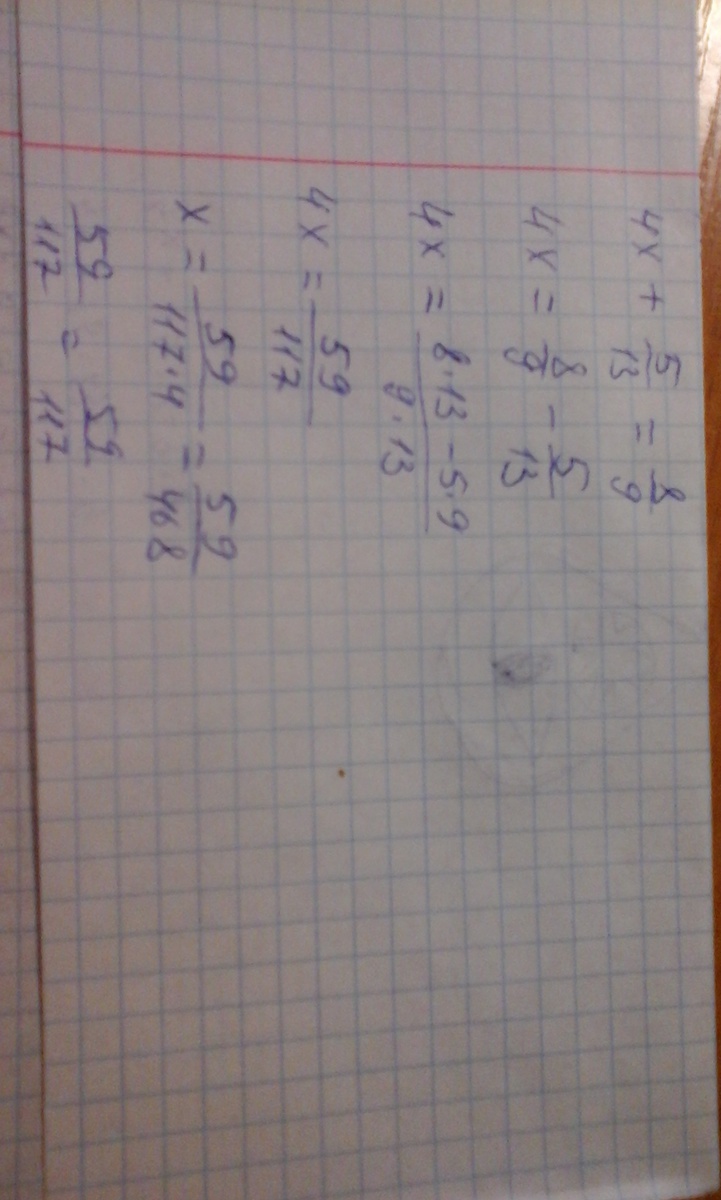 4x + 5/13 = 8/9
4x = 8/9 - 5/13
4x = (8·13 - 5·9)/(9·13)
4x = 59/117
x = 59/(117·4) = 59/468
59/117 = 59/117